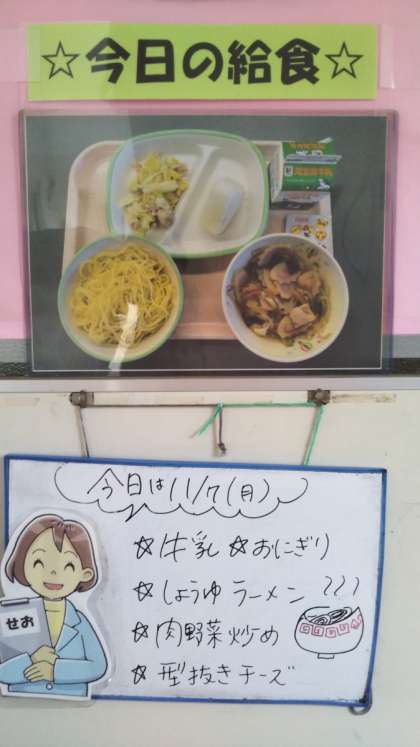 ☆今日の給食☆
今日は11/7(月)
☆牛乳 ☆おにぎり
☆しょうゆラーメン
☆肉野菜炒め
☆型抜きチーズ
せお